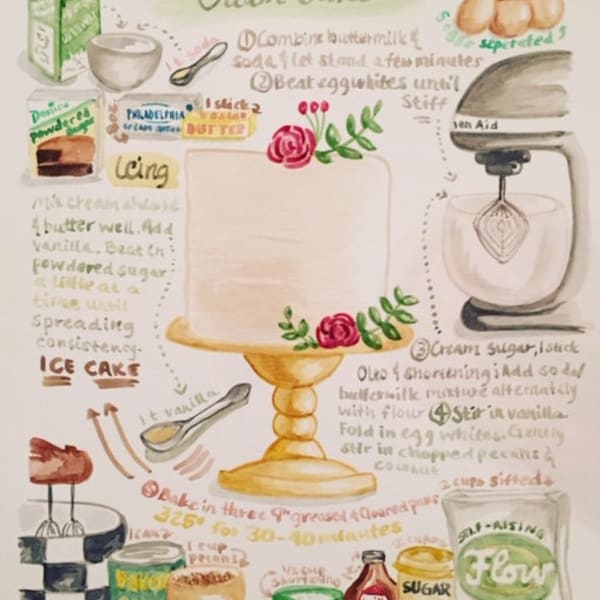 1 t soda
5 eggs seperated
① Combine buttermilk &
soda & let stand a few minutes
② Beat egg whites until
stiff
Domino
powdered
Sugar
PHILADELPHIA
CREAM CHEESE
1 stick
BUTTER
Icing
mix cream cheese
& butter well. Add
vanilla. Beat in
powdered sugar
a little at a
time until
spreading
consistency.
ICE CAKE
en Aid
③ Cream sugar, 1 stick
Oleo & shortening; Add soda/
buttermilk mixture alternately
with flour ④ Stir in vanilla
Fold in egg whites. Gently
stir in chopped pecans &
coconut
1 t vanilla
⑤ Bake in three 9" greased & floured pans
325° for 30-40 minutes
2 cups sifted
1 can
1 cup
pecans
1/2 cup
shortening
2 cups
SUGAR
SELF-RISING
Flour